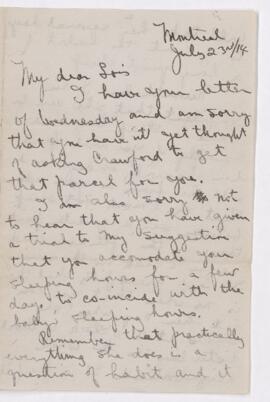 Montreal
July 23rd/14
My dear Lois
I have your letter
of Wednesday and am sorry
that you have'nt yet thought
of asking Crawford to get
that parcel for you.
I am also sorry not
to hear that you have given
a trial to my suggestion
that you accomodate your
sleeping hours for a few
days, to co-incide with the
baby sleeping hours.
Remember that practically
everything she does is a
question of habit and it